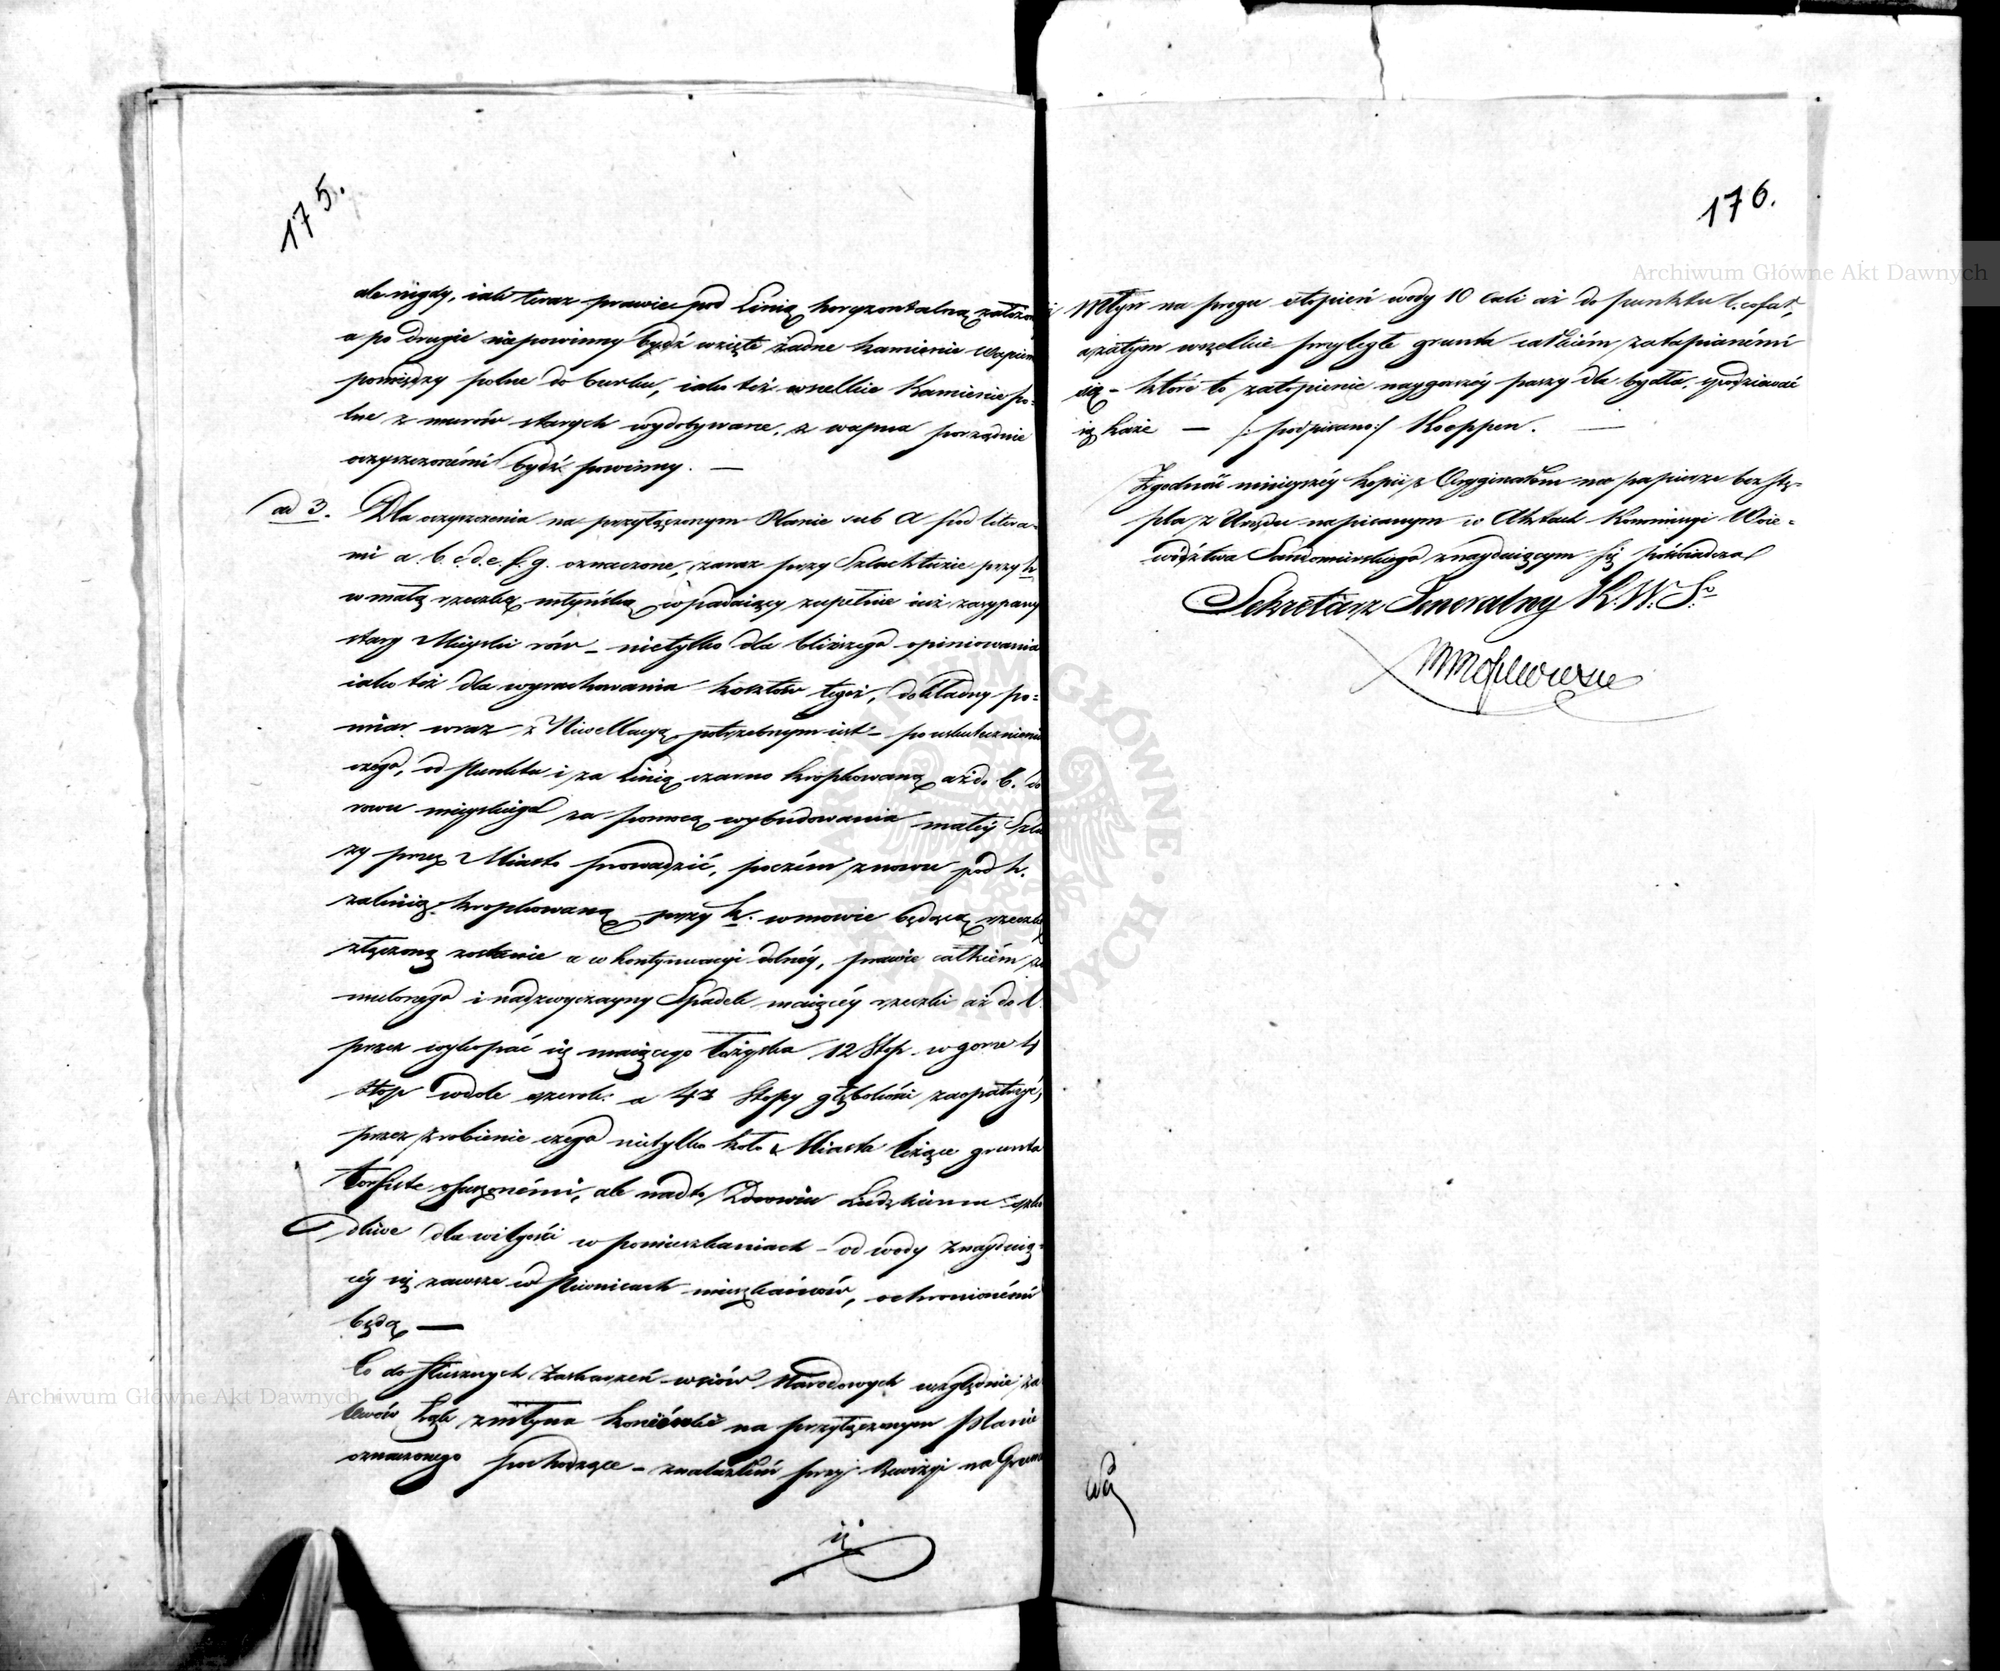 175.
ale nigdy, iak teraz prawie pod Linią horyzontalną założo
a po drugie niepowinny bydź wzięte żadne kamienie wapien
pomiędzy polne do burku, iako też wszelkie Kamienie po=
lne z murów starych wydobywane, z wapna porządnie
oczyszczonémi bydź powinny. —
ad 3. Dla oczyszczenia na przyłączonym Planie sub A pod litera=
mi a. b. c. d. e. f. g. oznaczone, zaraz przy Szlachtuzie przy h
w małą rzeczkę młyńską wpadaiący zupełnie iuż zasypany
stary Mieyski rów – nietylko dla bliższego opiniowania
iako też dla wyrachowania kosztów tegoż, dokładny po=
miar wraz z Niwellacyą potrzebnym iest – po uskutecznieniu
czego, od punktu i za Linią czarno kropkowaną aż do b. do
rowu mieyskiego za pomocą wybudowania małéy Szlu
zy przez Miasto prowadzić, poczém znowu pod h.
za linią kropkowaną przy k. w mowie będącą rzeczką
złączoną zostanie a w kontynuacyi dolnéy, prawie całkiém za
mulonego i nadzwyczayny Spadek maiącéy rzeczki aż do l.
przez wykopać się maiącego łożyska 12 Stop w gorze 4
Stop w dole szerok: a 4½ Stopy głębokości zaopatrzyć,
przez zrobienie czego nietylko koło Miasta leżące grunta
torfiste osuszonémi, ale nadto Zdrowiu Ludzkiemu szko
dliwe dla wilgości w pomieszkaniach – od wody znayduią=
céy się zawsze w piwnicach mieszkańców, ochronionémi
będą —
Co do słusznych zaskarzeń wsiów Narodowych względnie za
lewów Łąk z młyna na przyłączonym Planie
oznaczonego pochodzące – znalazłem przy Rewizyi na Grun
176.
Młyn na progu stopień wody 10 Cali aż do punktu l. cofał,
a zatym wszelkie przyległe grunta całkiém zatapianémi
są – które to zatopienie naygorszéy paszy dla bydła, spodziewać
się każe — /: podpisano:/ Koeppen. —
Zgodność ninieyszéy kopii z Oryginałem na papierze bez stę=
pla z Urzędu napisanym w Aktach Kommissyi Woie=
wództwa Sandomirskiego znayduiącym się poświadcza
Sekretarz Generalny K. W. S.
Archiwum Główne Akt Dawnych
Archiwum Główne Akt Dawnych
ARCHIWUM GŁÓWNE AKT DAWNYCH